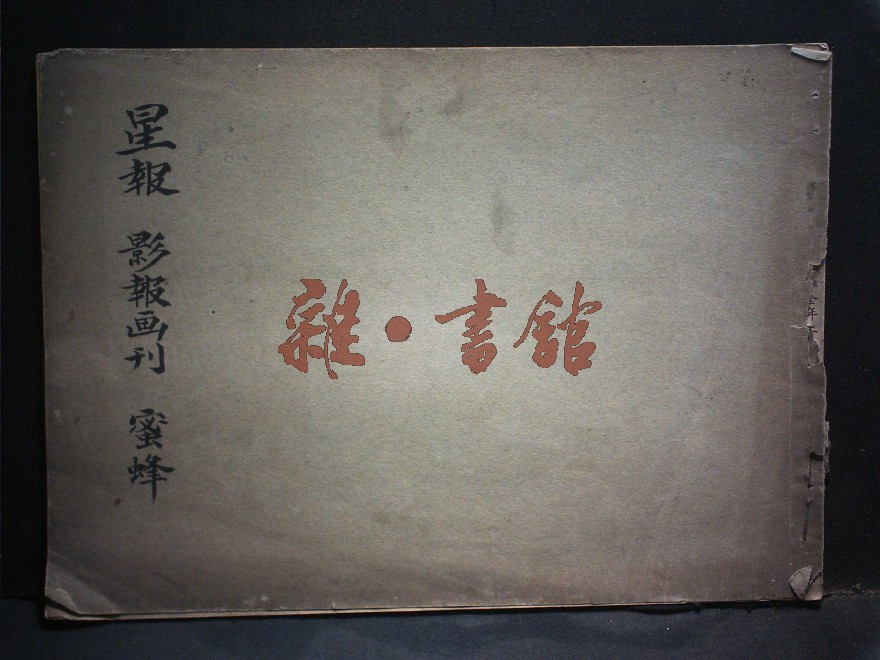 星報 影報画刊 蜜蜂
雜·書館
全年